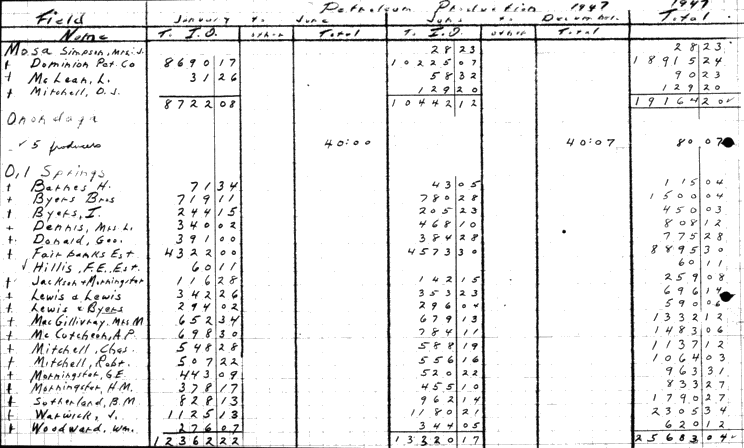 Petroleum Production 1947 1947
Field January to June June to December Total
Name T. I.O. other Total T. I.O. other Total
Mosa Simpson, Mrs. J. 28 23 28 23
+ Dominion Pet. Co 8690 17 10225 07 18915 24
+ McLean, L. 31 26 58 32 90 23
+ Mitchell, D. J. 129 20 129 20
8722 08 10442 12 19164 20
Onondaga
✓ 5 producers 40:00 40:07 80 07
Oil Springs
+ Barnes H. 71 34 43 05 115 04
+ Byers Bros 719 11 780 28 1500 04
+ Byers, I. 244 15 205 23 450 03
+ Dennis, Mrs. L. 340 02 468 10 808 12
+ Donald, Geo. 391 00 384 28 775 28
+ Fairbanks Est 4322 00 4573 30 8895 30
✓ Hillis, F.E. Est. 60 11 60 11
✓ Jackson & Morningstar 116 28 142 15 259 08
+ Lewis & Lewis 342 26 353 23 696 14
+ Lewis & Byers 294 02 296 04 590 06
+ MacGillivray, Mrs M 652 34 679 13 1332 12
+ McCutcheon, A.P. 698 30 784 11 1483 06
+ Mitchell, Chas. 548 28 588 19 1137 12
+ Mitchell, Robt. 507 22 556 16 1064 03
+ Morningstar, G.E. 443 09 520 22 963 31
+ Morningstar, H.M. 378 17 455 10 833 27
+ Sutherland, B.M. 828 13 962 14 1790 27
+ Warwick, J. 1125 13 1180 21 2305 34
+ Woodward, Wm. 276 07 344 05 620 12
12362 22 13320 17 25683 04